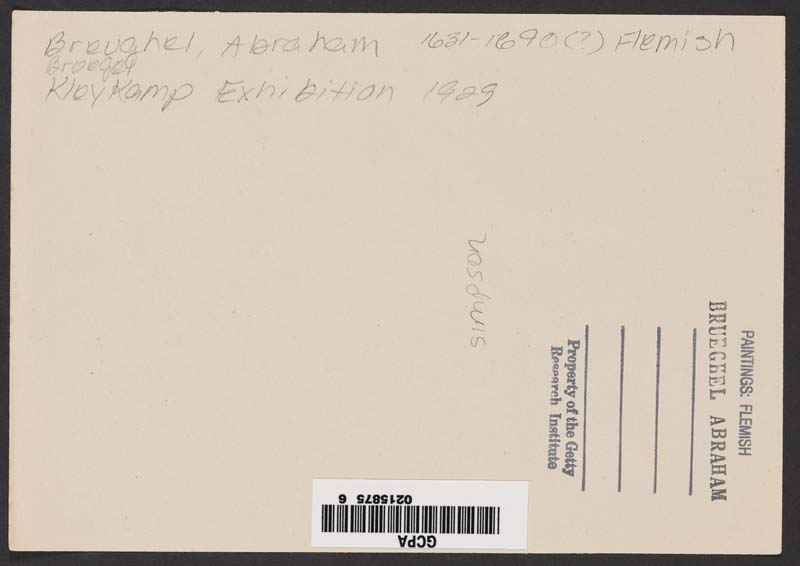 Breughel, Abraham 1631-1690(?) Flemish
Bruegel
Kleykamp Exhibition 1929
Simpson
PAINTINGS: FLEMISH
BRUEGHEL ABRAHAM
Property of the Getty
Research Institute
GCPA
0215875 6